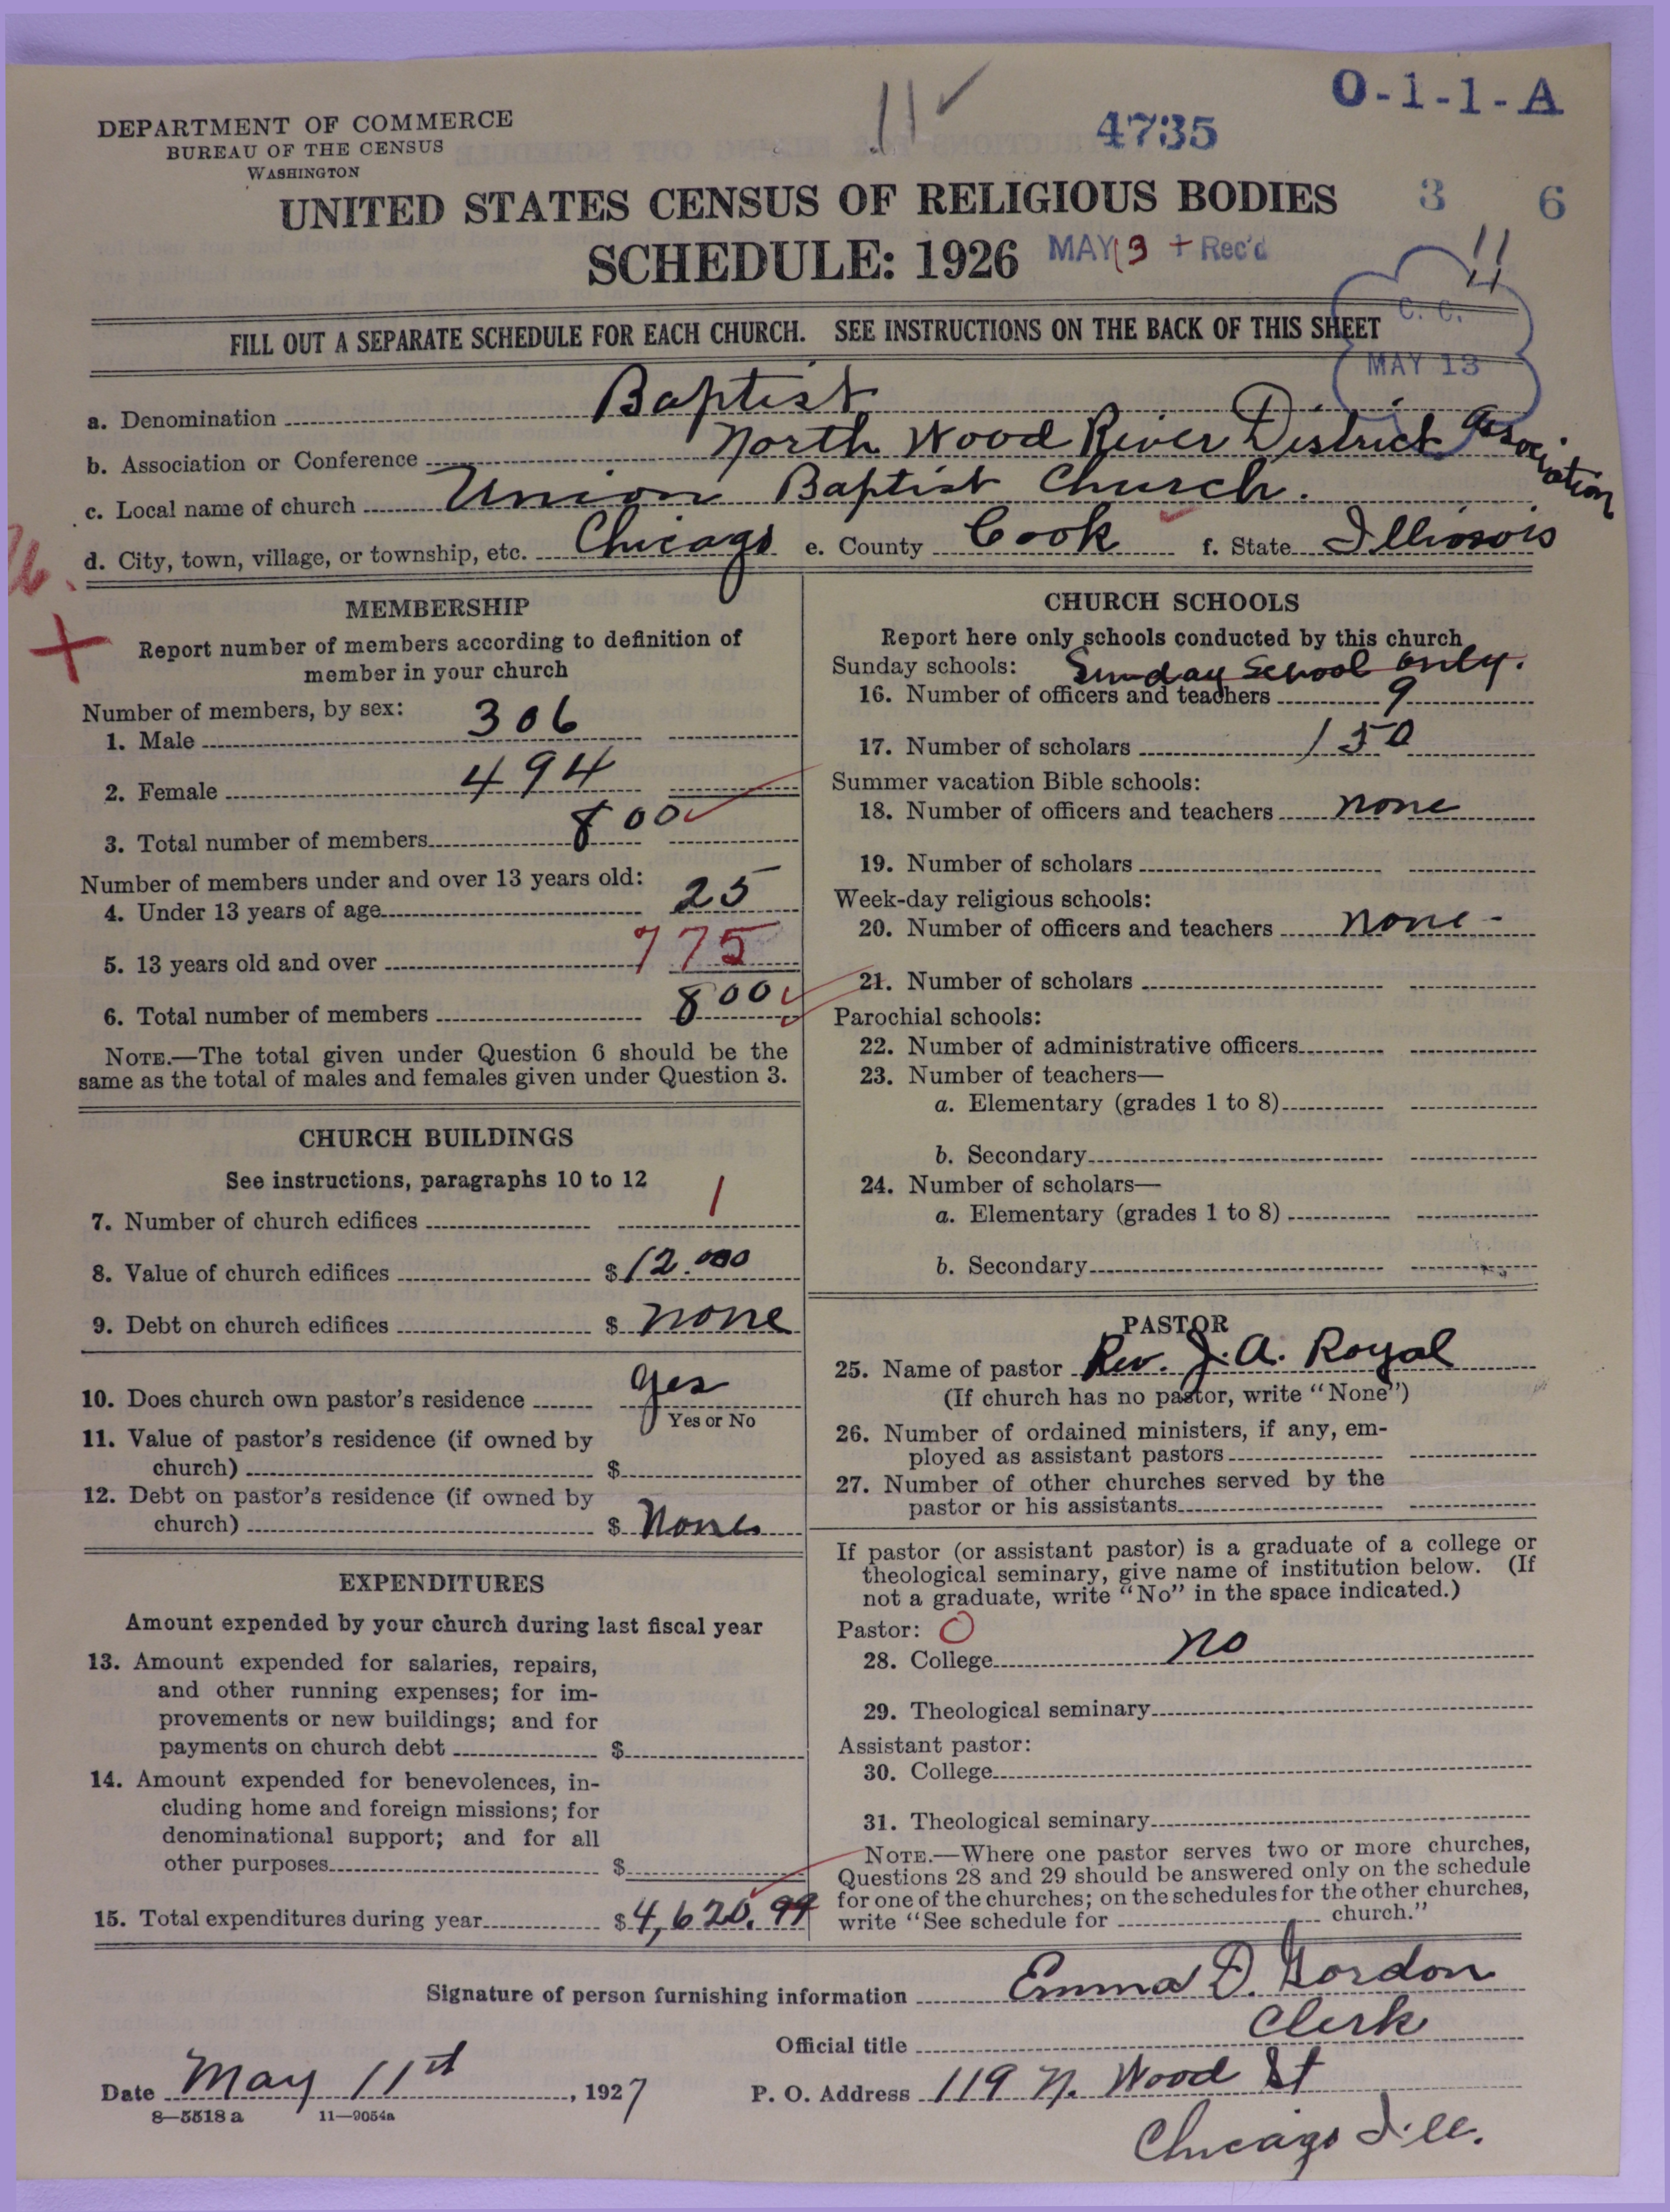 O-1-1-A
11 ✓
4735
DEPARTMENT OF COMMERCE
BUREAU OF THE CENSUS
WASHINGTON
3 6
UNITED STATES CENSUS OF RELIGIOUS BODIES
SCHEDULE: 1926
MAY 13 + Rec'd
11
C. C.
MAY 13
FILL OUT A SEPARATE SCHEDULE FOR EACH CHURCH. SEE INSTRUCTIONS ON THE BACK OF THIS SHEET
a. Denomination Baptist
b. Association or Conference North Wood River District Association
c. Local name of church Union Baptist Church.
d. City, town, village, or township, etc. Chicago e. County Cook f. State Illinois
MEMBERSHIP
Report number of members according to definition of
member in your church
Number of members, by sex:
1. Male 306
2. Female 494
3. Total number of members 800
Number of members under and over 13 years old:
4. Under 13 years of age 25
5. 13 years old and over 775
6. Total number of members 800
NOTE.—The total given under Question 6 should be the
same as the total of males and females given under Question 3.
CHURCH BUILDINGS
See instructions, paragraphs 10 to 12
7. Number of church edifices 1
8. Value of church edifices $ 12.000
9. Debt on church edifices $ none
10. Does church own pastor's residence yes
Yes or No
11. Value of pastor's residence (if owned by
church) $
12. Debt on pastor's residence (if owned by
church) $ None
EXPENDITURES
Amount expended by your church during last fiscal year
13. Amount expended for salaries, repairs,
and other running expenses; for im-
provements or new buildings; and for
payments on church debt $
14. Amount expended for benevolences, in-
cluding home and foreign missions; for
denominational support; and for all
other purposes $
15. Total expenditures during year $ 4,620.99
CHURCH SCHOOLS
Report here only schools conducted by this church
Sunday schools: Sunday School only.
16. Number of officers and teachers 9
17. Number of scholars 150
Summer vacation Bible schools:
18. Number of officers and teachers none
19. Number of scholars
Week-day religious schools:
20. Number of officers and teachers none -
21. Number of scholars
Parochial schools:
22. Number of administrative officers
23. Number of teachers—
a. Elementary (grades 1 to 8)
b. Secondary
24. Number of scholars—
a. Elementary (grades 1 to 8)
b. Secondary
PASTOR
25. Name of pastor Rev. J. A. Royal
(If church has no pastor, write "None")
26. Number of ordained ministers, if any, em-
ployed as assistant pastors
27. Number of other churches served by the
pastor or his assistants
If pastor (or assistant pastor) is a graduate of a college or
theological seminary, give name of institution below. (If
not a graduate, write "No" in the space indicated.)
Pastor: O
28. College no
29. Theological seminary
Assistant pastor:
30. College
31. Theological seminary
NOTE.—Where one pastor serves two or more churches,
Questions 28 and 29 should be answered only on the schedule
for one of the churches; on the schedules for the other churches,
write "See schedule for church."
Signature of person furnishing information Emma D. Gordon
Official title Clerk
Date May 11th, 1927
P. O. Address 119 N. Wood St
Chicago Ill.
8—5518 a 11—9054a